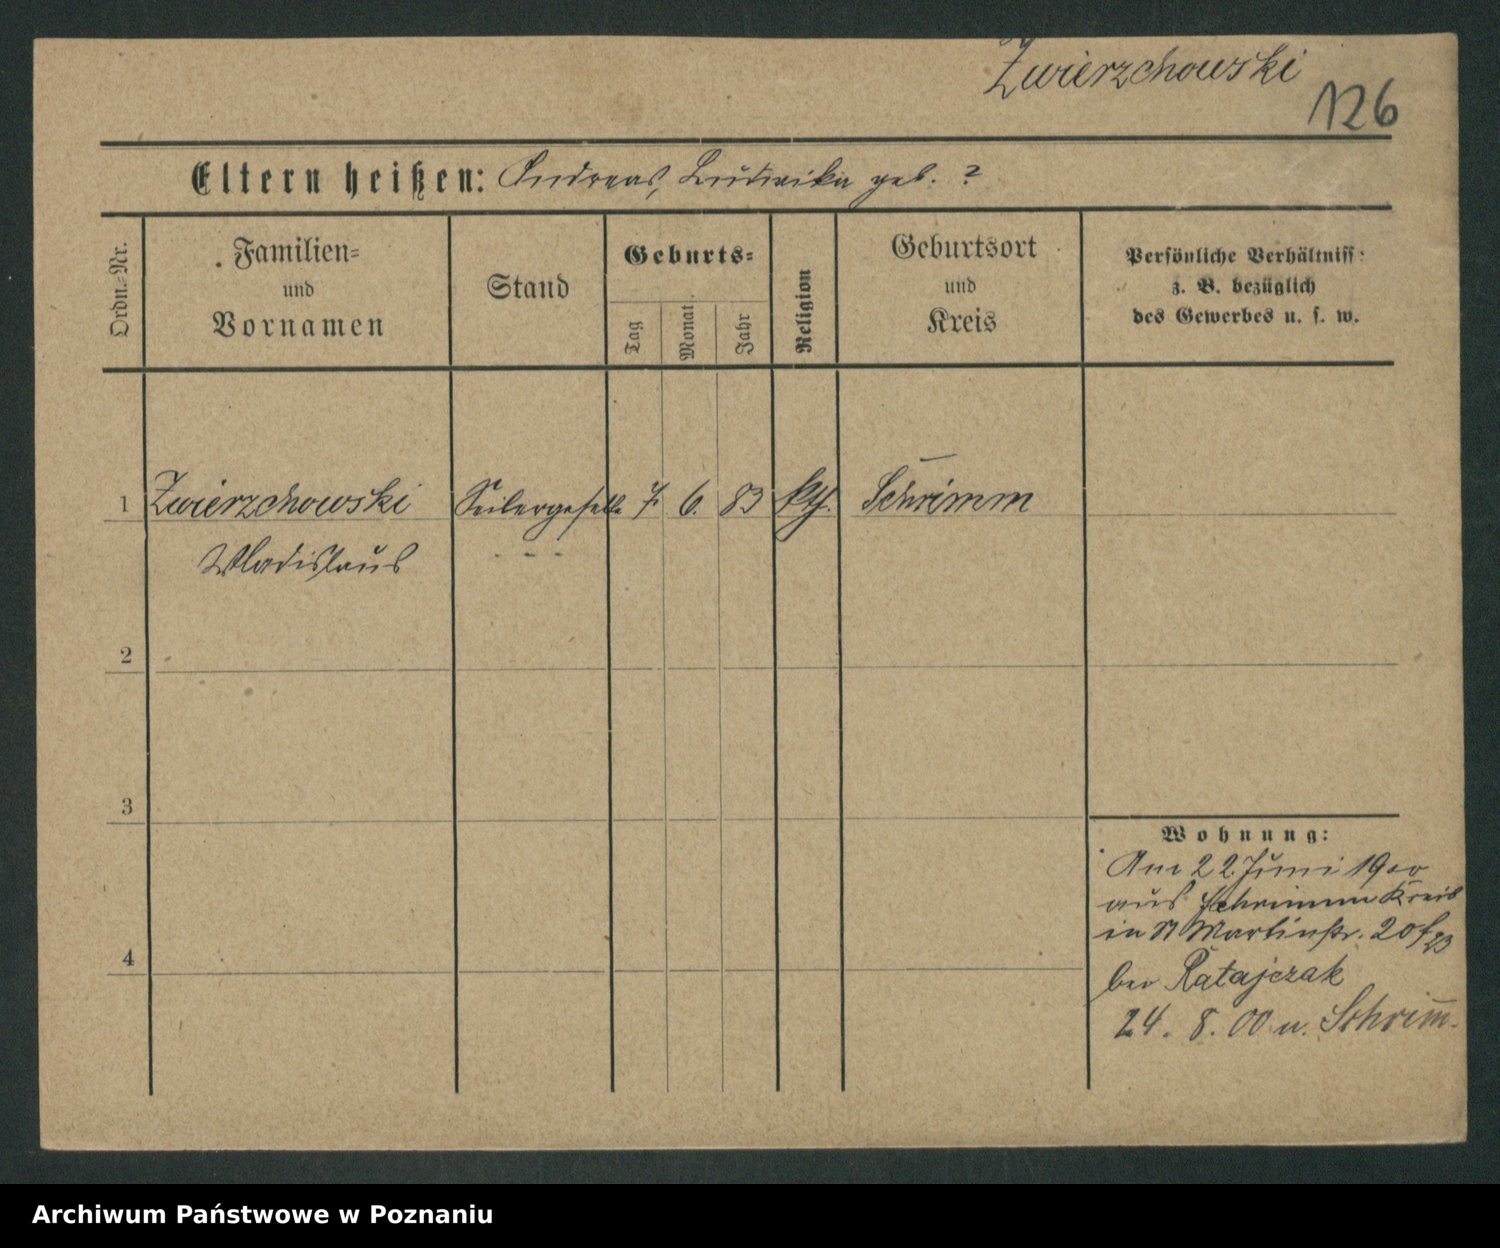 Zwierzchowski
126
Eltern heißen: Andreas, Ludwika geb. ?
Ordn.-Nr.
Familien-
und
Vornamen
Stand
Geburts-
Tag
Monat
Jahr
Religion
Geburtsort
und
Kreis
Persönliche Verhältniss:
z. B. bezüglich
des Gewerbes u. s. w.
1 Zwierzchowski Seilergeselle 7. 6. 83 kth. Schrimm
Wladislaus
2
3
4
Wohnung:
Am 22. Juni 1900
aus Schrimm Kreis
in St Martinstr. 20
bei Ratajczak
24. 8. 00 n. Schrim̄.
Archiwum Państwowe w Poznaniu